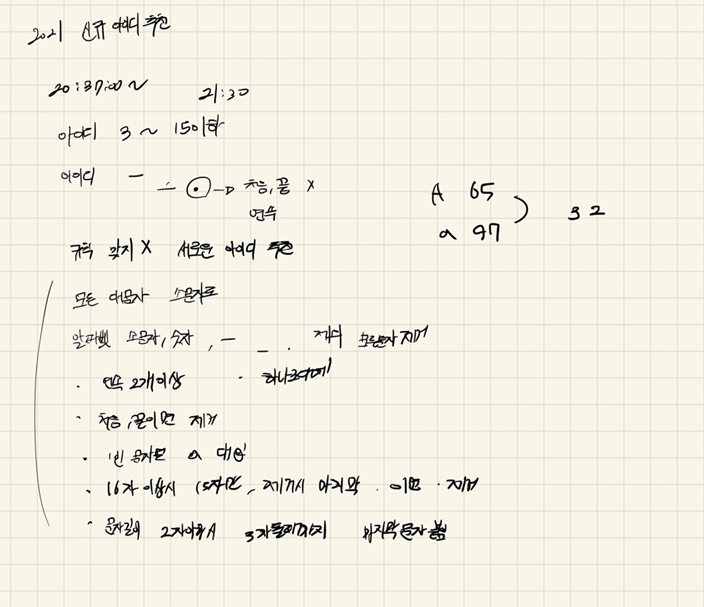 2021 신규 아이디 추천
20:37:00 ~ 21:30
아이디 3 ~ 15이하
아이디 - _ . → 처음, 끝 x
연속
A 65
a 97
32
규칙 맞지 X 새로운 아이디 추천
모든 대문자 소문자로
알파벳 소문자, 숫자, - _ . 제외 모든문자 제거
· 연속 2개이상 . 하나로
· 처음, 끝이면 제거
· 빈 문자면 a 대입
· 16자 이상시 15자만, 제거시 마지막 . 이면 . 제거
· 문자길이 2자이하시 3자 마지막 문자 붙